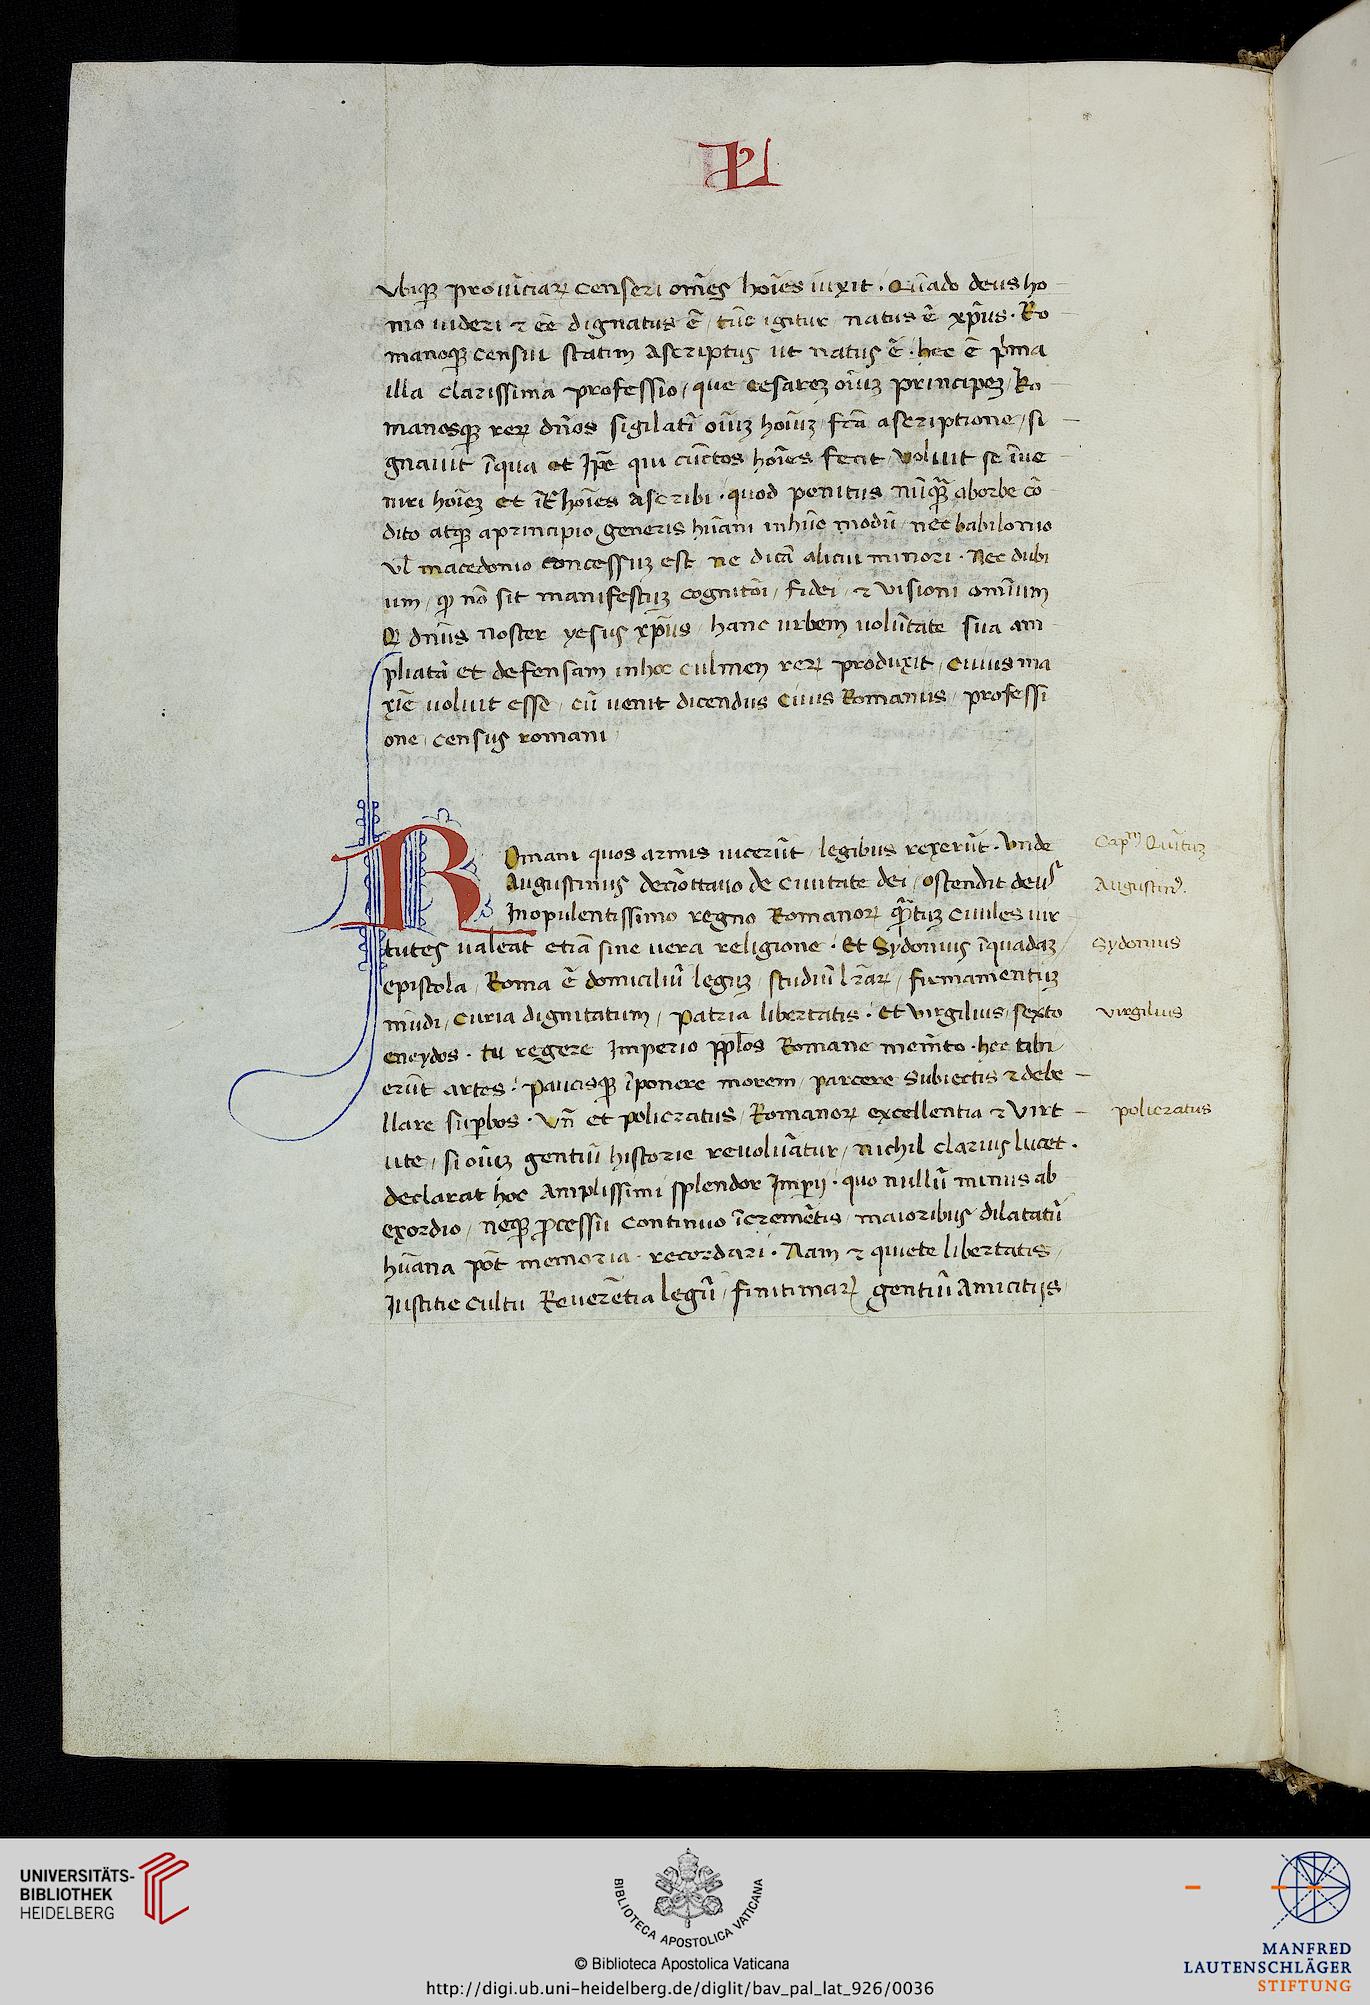 L
ubiqꝫ prouīciaꝝ censeri om̄es hoīes iuxit. Qn̄ado deus ho
mo uideri ⁊ eē dignatus ē / tūc igitur natus ē xp̄us. Ro
manoqꝫ censui statim Ascriptus ut natus ē. hec ē pͥma
illa clarissima professio / que cesarez oīuꝫ principeꝫ / Ro
manosqꝫ reꝝ dn̄os sigilatī oīuꝫ hoīuꝫ / fcā ascriptione / si
gnauit īqua et Ip̄e qui cūctos hoīes fecit voluit se īue
niri hoīeꝫ et īt̄ hoīes Ascribi. quod penitus nūqꝫ aborbe cō
dito atqꝫ aprincipio generis hūani inhūc modū / nec babilonio
vl̄ macedonio concessuꝫ est ne dicā alicui minori. Nec dubi
um / qꝫ nō sit manifestuꝫ cognitōi / fidei / ⁊ visioni omīum
Q dn̄us noster yesus xp̄us / hanc urbem uolūtate sua am
pliatā et defensam inhoc culmen reꝝ produxit / cuius ma
xīe uoluit esse / cū uenit dicendus Ciuis Romanus / professi
one / census romani
Romani quos armis uicerūt / legibus rexerūt. Vnde
Augustinus deciōttauo de Ciuitate dei / ostendit deus
Inopulentissimo regno Romanoꝝ qᷓtuꝫ Ciuiles uir
tutes ualeāt etiā sine uera religione. Et Sydonius īquadaꝫ
epistola / Roma ē domiciliū leguꝫ / studiū lr̄aꝝ / firmamentuꝫ
mūdi / Curia dignitatum / Patria libertatis. et virgilius / sexto
eneydos. tu regere Imperio pp̄los Romane memēto. hec tibi
erūt artes. Paucisqꝫ īponere morem / parcere Subiectis ⁊ debe
llare suꝑbos. Vn̄ et policratus / Romanoꝝ excellentia ⁊ virt
ute / si oīuꝫ gentiū historie reuoluātur / nichil clarius lucet.
declarat hoc Amplissimi splendor Imꝑij. quo nullū minus ab
exordio / neqꝫ ꝓcessu continuo īcremētis / maioribus dilatatū
hūana pōt memoria recordari. Nam ⁊ quiete libertatis /
Iustitie cultu Reuerētia legū / finitimaꝝ gentiū Amicitijs
Capᵐ Quītuꝫ
Augustinꝰ.
Sydonius
virgilius
policratus
UNIVERSITÄTS-
BIBLIOTHEK
HEIDELBERG
BIBLIOTECA APOSTOLICA VATICANA
© Biblioteca Apostolica Vaticana
http://digi.ub.uni-heidelberg.de/diglit/bav_pal_lat_926/0036
MANFRED
LAUTENSCHLÄGER
STIFTUNG